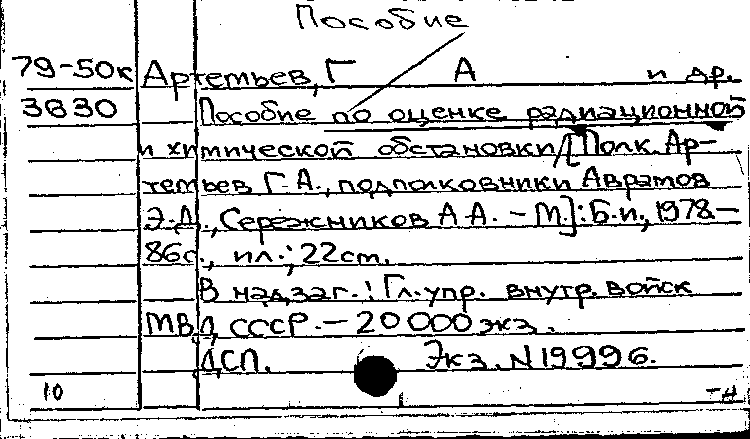 Пособие
79-50к Артемьев, Г А и др.
3630 Пособие по оценке радиационной
и химической обстановки/[Полк. Ар-
темьев Г.А., подполковники Авратов
Э.Д., Сережников А.А. – М.]: Б.и., 1978.–
86с., ил.; 22см.
В надзаг.: Гл.упр. внутр. войск
МВД СССР. – 20000 экз.
ДСП. Экз. N 19996.
10